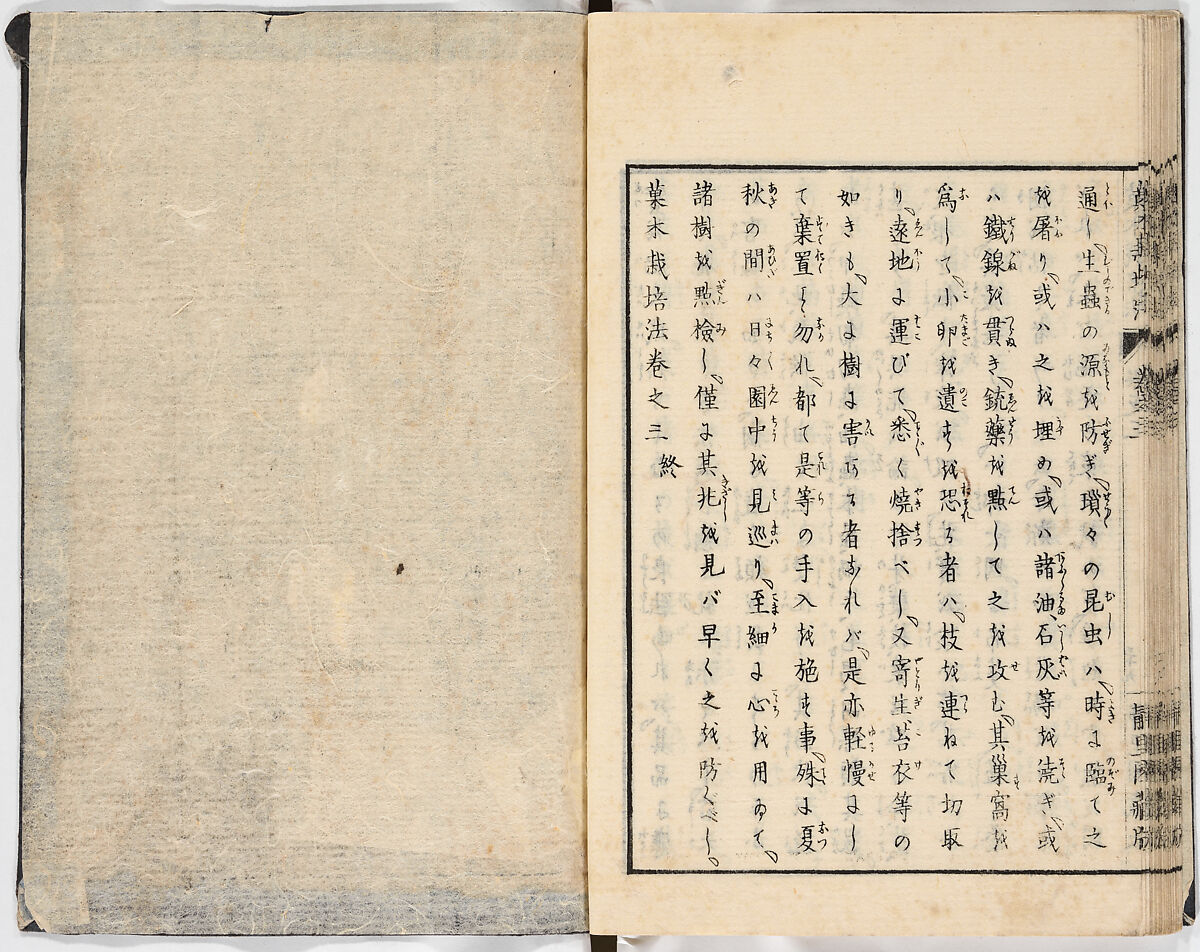 通し、生蟲の源を防ぎ、瑣々の昆虫ハ、時に臨て之
を屠り、或ハ之を埋め、或ハ諸油、石灰等を澆ぎ、或
ハ鐵鎳を貫き、銃藥を點して之を攻む、其巢窩を
爲して、小卵を遺すを恐る者ハ、枝を連ねて切取
り、遠地に運びて、悉く燒捨べし、又寄生、苔衣等の
如きも、大に樹に害ある者なれバ、是亦軽慢にし
て棄置く勿れ、都て是等の手入を施す事、殊に夏
秋の間ハ日々園中を見巡り、至細に心を用ゐて、
諸樹を點檢し、僅に其兆を見バ早く之を防ぐべし、
菓木栽培法卷之三 終